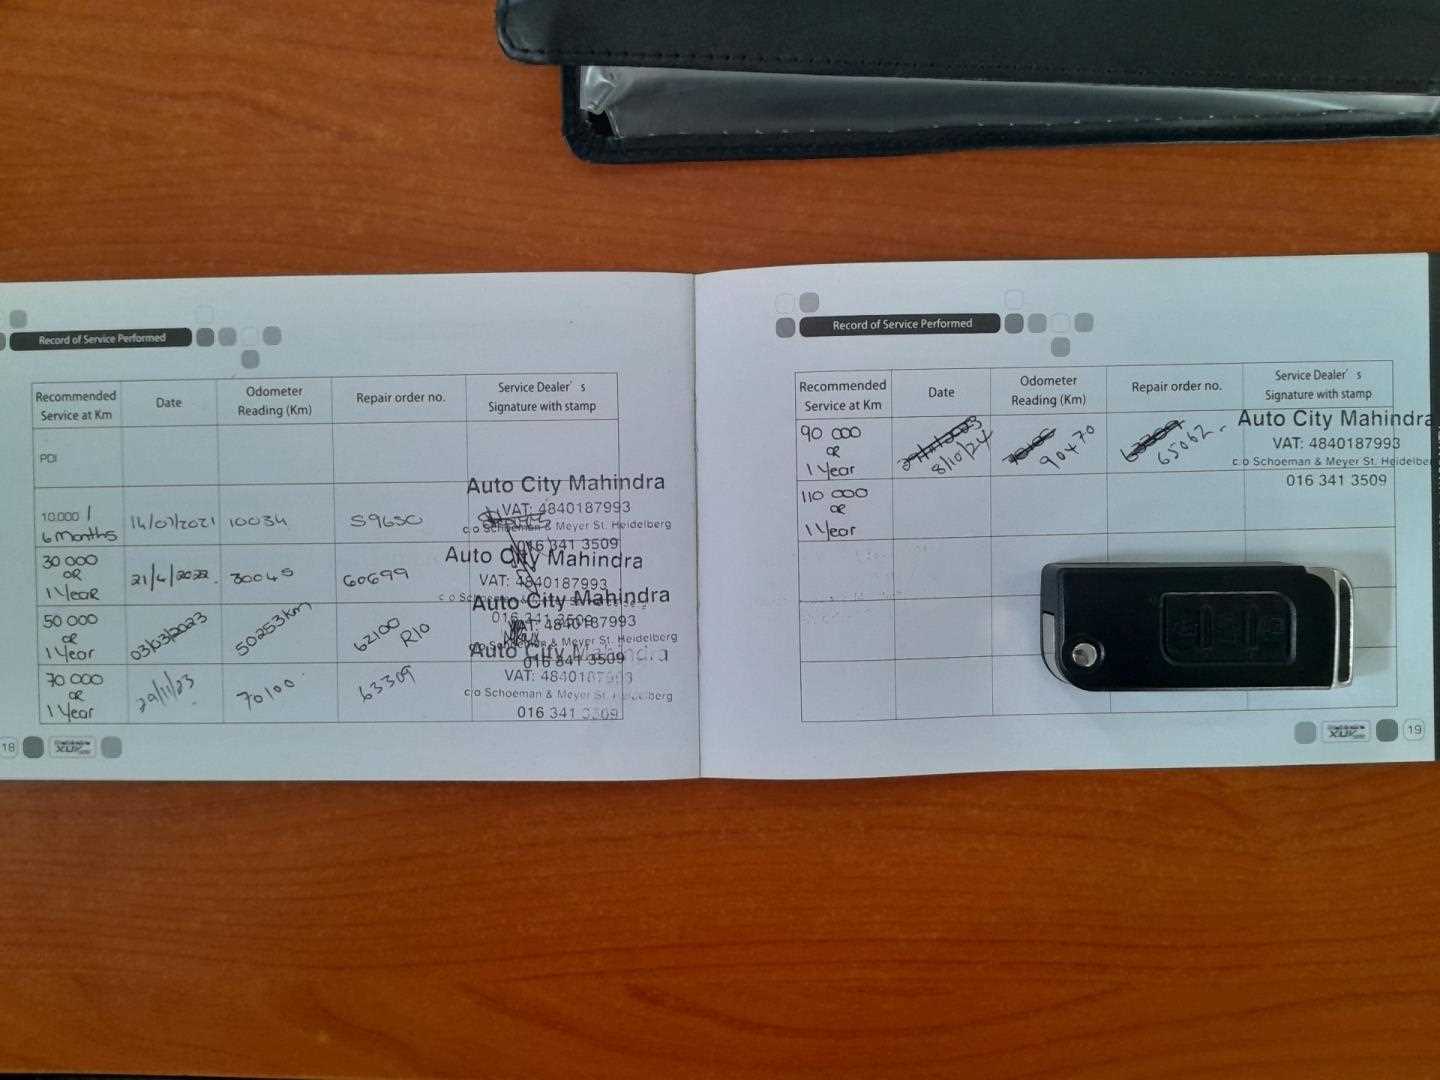 Record of Service Performed
Recommended Service at Km Date Odometer Reading (Km) Repair order no. Service Dealer's Signature with stamp
PDI
10.000 / 6 Months 14/07/2021 10034 59630
Auto City Mahindra
VAT: 4840187993
c/o Schoeman & Meyer St. Heidelberg
016 341 3509
30 000 OR 1 Year 21/4/2022. 30045 60699
Auto City Mahindra
VAT: 4840187993
50 000 OR 1 Year 03/03/2023 50253km 62100 R10
Auto City Mahindra
VAT: 4840187993
c/o Schoeman & Meyer St. Heidelberg
016 341 3509
70 000 OR 1 Year 29/11/23 70100 63309
Auto City Mahindra
VAT: 4840187993
c/o Schoeman & Meyer St. Heidelberg
016 341 3509
18
Record of Service Performed
Recommended Service at Km Date Odometer Reading (Km) Repair order no. Service Dealer's Signature with stamp
90 000 OR 1 Year 8/10/24 90470 65062
Auto City Mahindra
VAT: 4840187993
c/o Schoeman & Meyer St. Heidelberg
016 341 3509
110 000 OR 1 Year
XUV
19